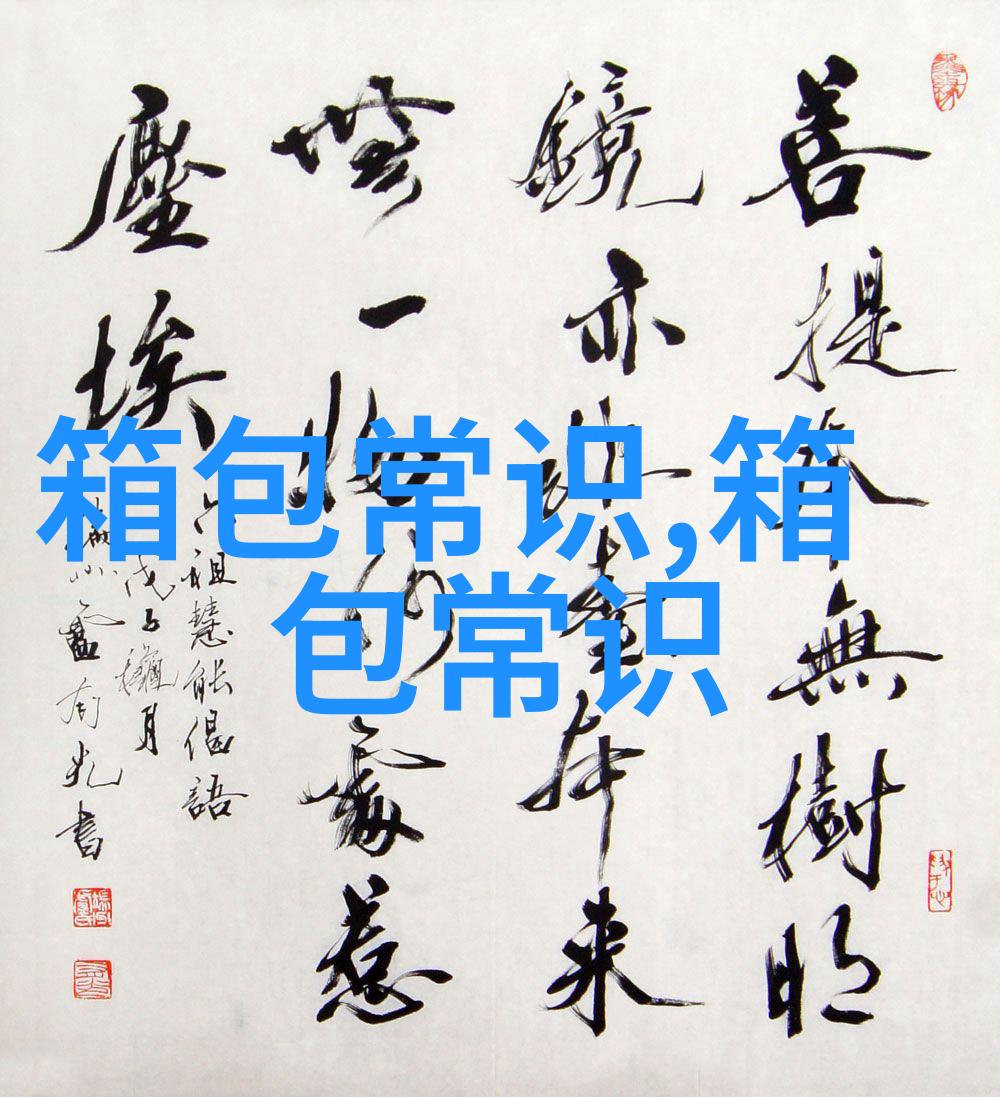 箱包常识,箱
包常识
菩提本無樹明
鏡亦非臺本来
無一物何處惹
塵埃
六祖慧能偈語
戊子穐月
書